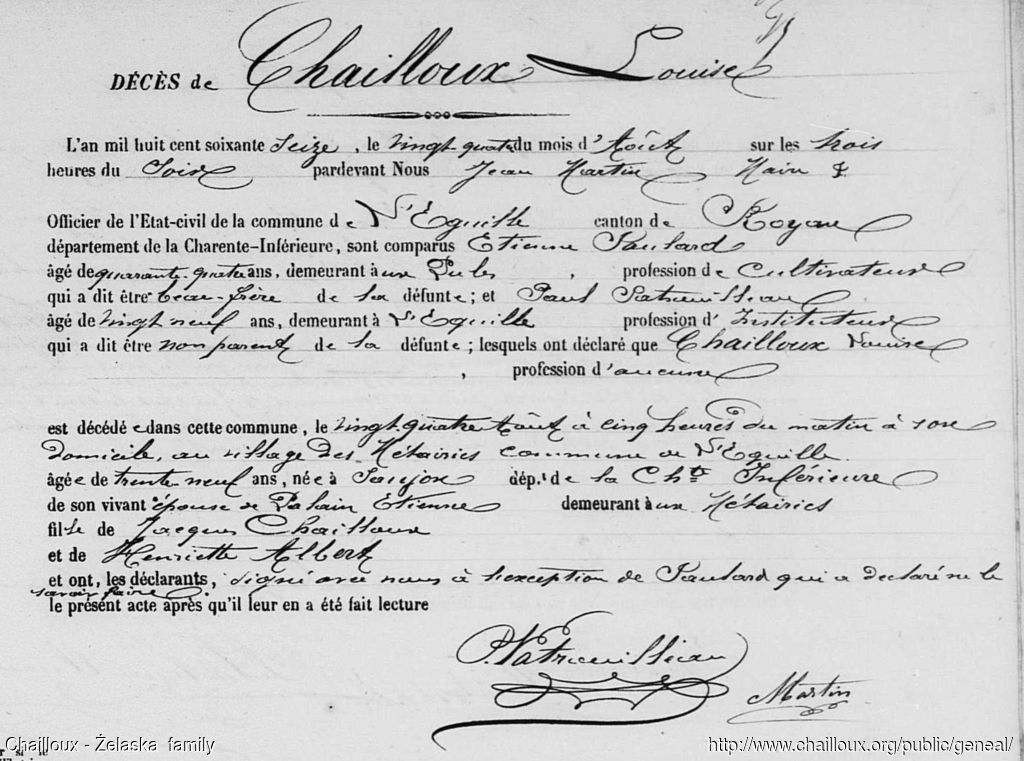 DÉCÈS de Chailloux Louise
L'an mil huit cent soixante Seize, le vingt quatre du mois d'Août sur les trois
heures du Soir pardevant Nous Jean Martin Maire &
Officier de l'Etat-civil de la commune de L'Eguille canton de Royan
département de la Charente-Inférieure, sont comparus Etienne
âgé de quarante-quatre ans, demeurant à aux , profession de Cultivateur
qui a dit être beau-frère de la défunte; et Paul Patrouilleau
âgé de vingt neuf ans, demeurant à L'Eguille profession d'Instituteur
qui a dit être non parent de la défunte; lesquels ont déclaré que Chailloux Louise
, profession d'aucune
est décédée dans cette commune, le vingt-quatre Août à cinq heures du matin à son
domicile, au village des Métairies commune de L'Eguille.
âgée de trente-neuf ans, née à Saujon dép.t de la Ch.te Inférieure
de son vivant épouse de Etienne demeurant aux Métairies
fille de Jacques Chailloux
et de Henriette Albert
et ont, les déclarants, signé avec nous à l'exception de qui a déclaré ne le
savoir faire.
le présent acte après qu'il leur en a été fait lecture
P. Patrouilleau
Martin
Chailloux - Żelaska family
http://www.chailloux.org/public/geneal/